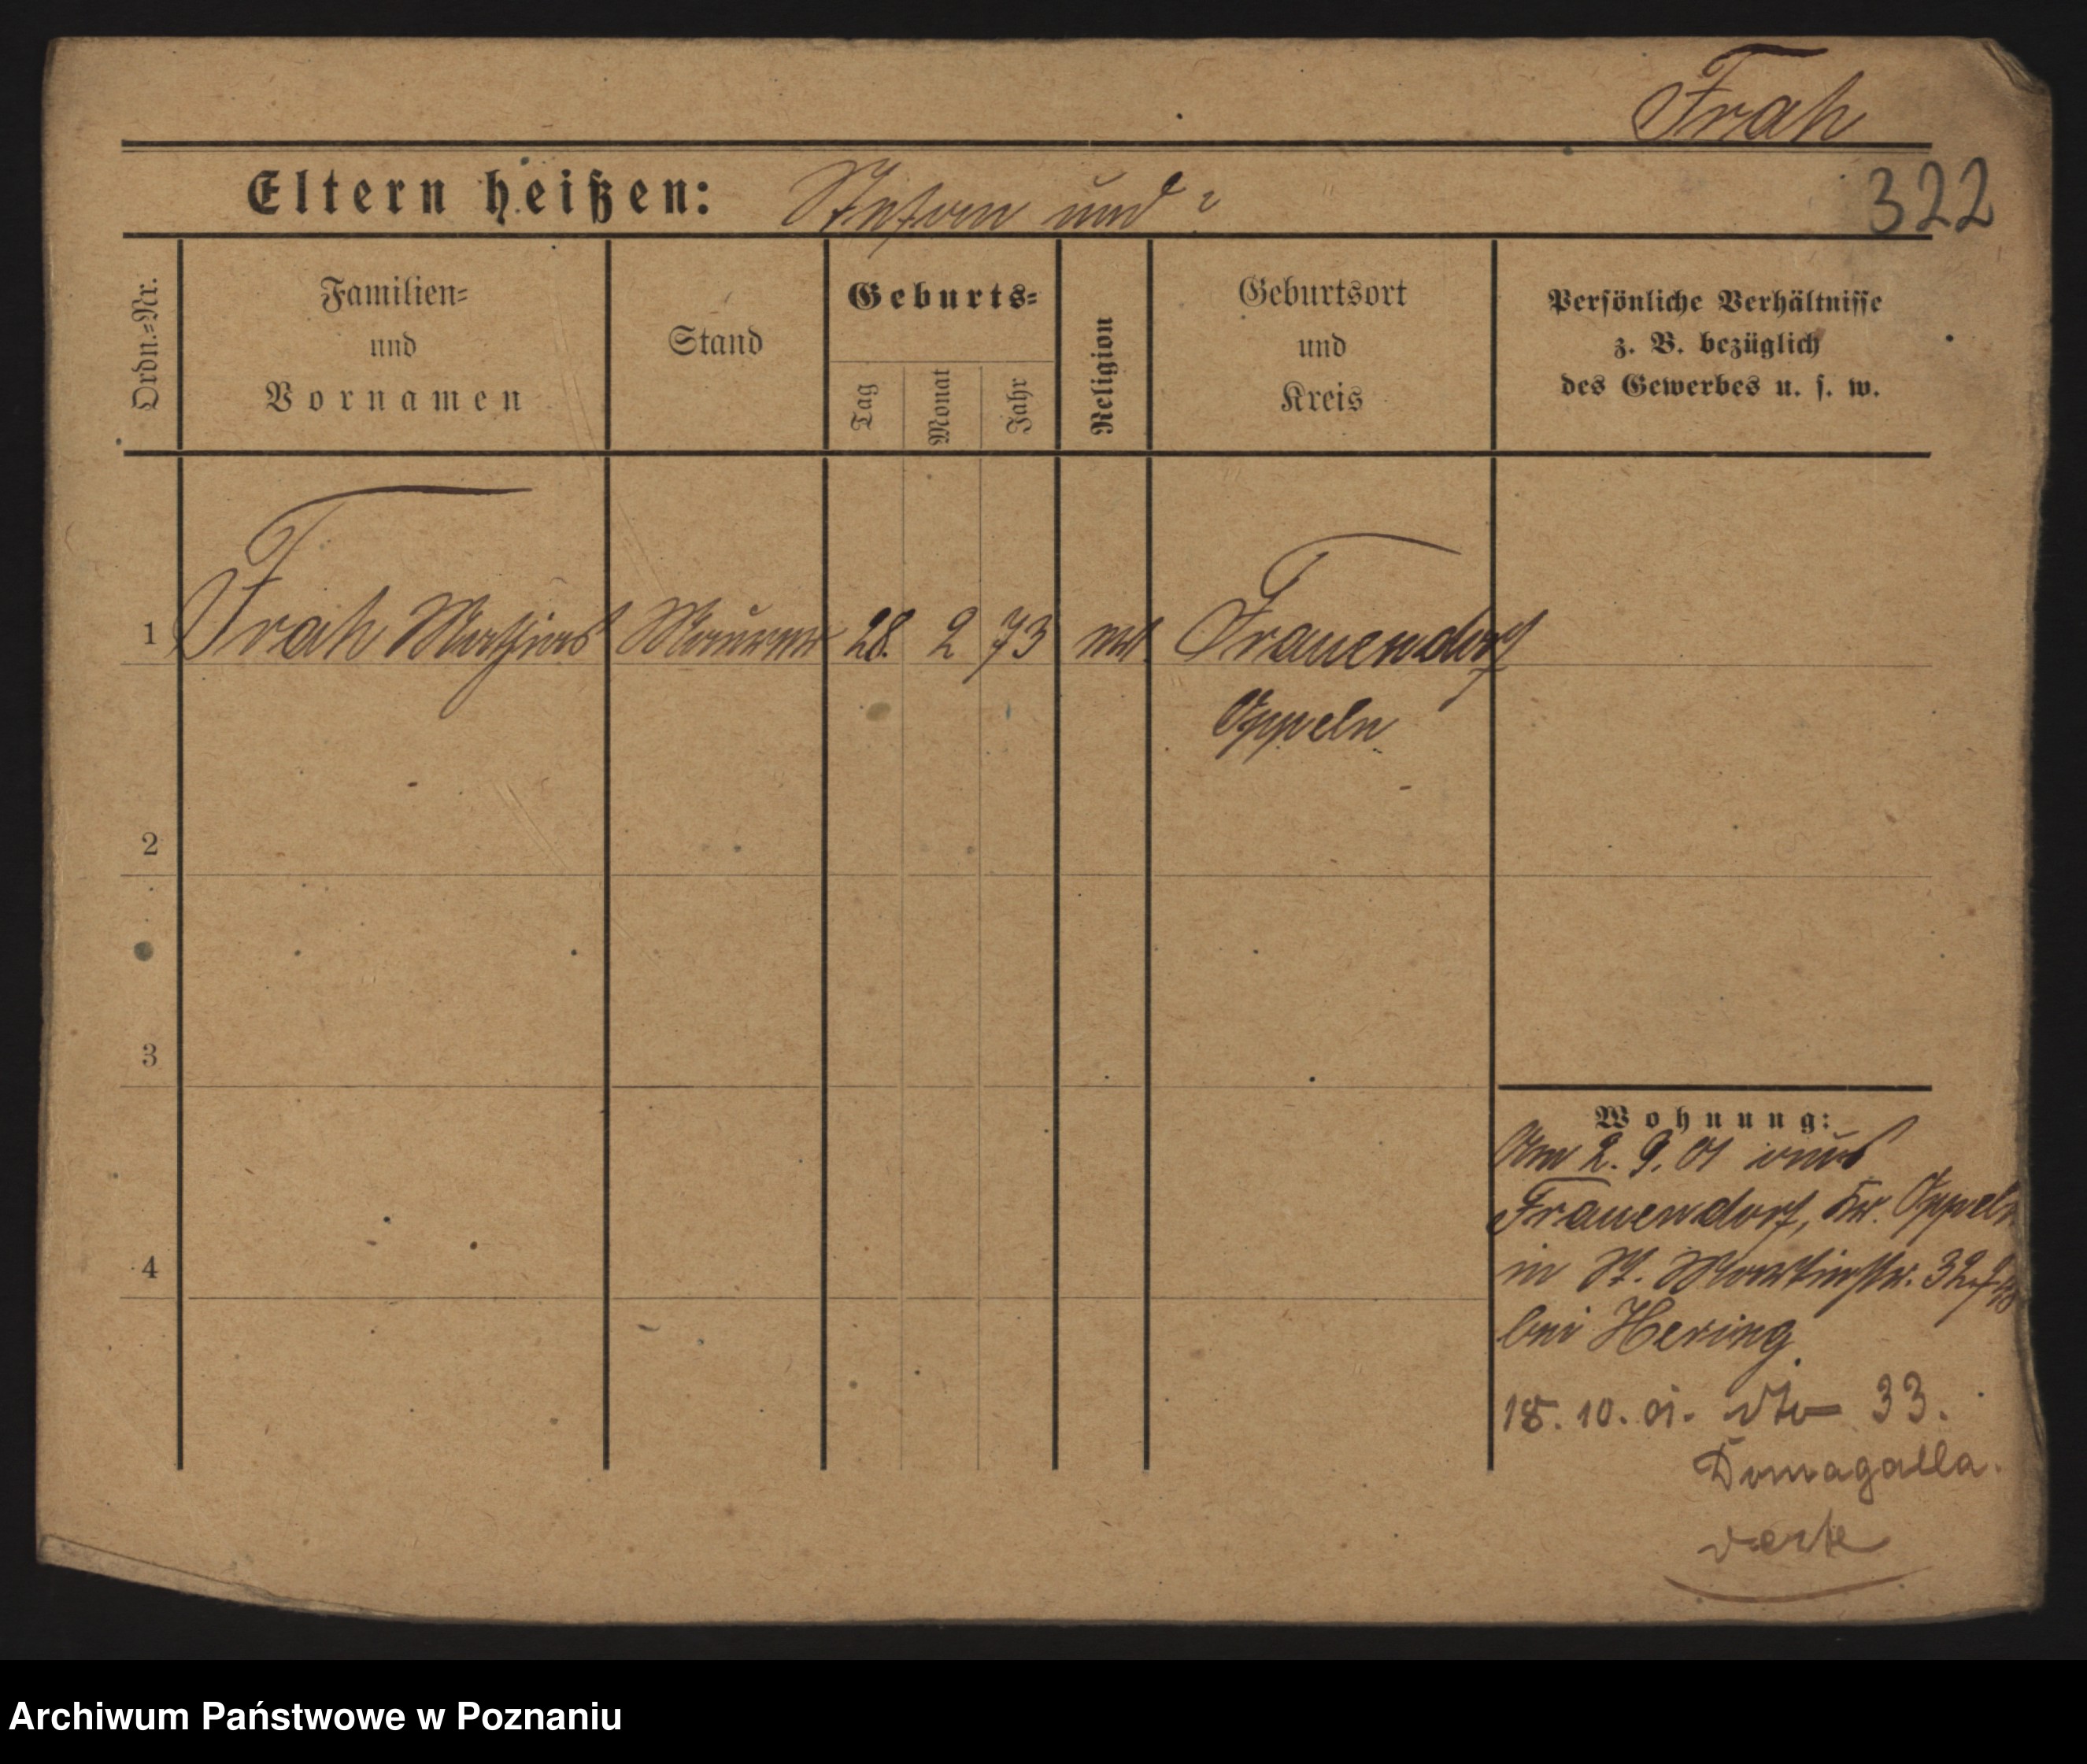 Frah
322
Eltern heißen: Stefan und ?
Ordn.=Nr.
Familien=
und
Vornamen
Stand
Geburts=
Tag
Monat
Jahr
Religion
Geburtsort
und
Kreis
Persönliche Verhältnisse
z. B. bezüglich
des Gewerbes u. s. w.
1 Frah Mathias Maurer 28. 2 73 Frauendorf
Oppeln
2
3
4
Wohnung:
Am 2. 9. 01 aus
Frauendorf, Kr. Oppeln
in St. Martinstr. 32
bei Hering
18. 10. 01. dto 33.
Domagalla.
Archiwum Państwowe w Poznaniu